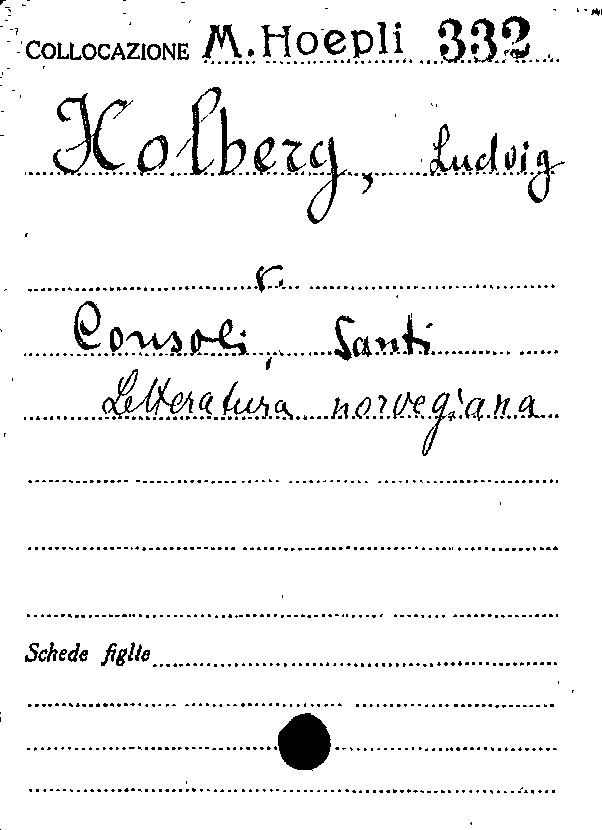 COLLOCAZIONE M. Hoepli 332
Holberg, Ludvig
v.
Consoli, Santi
Letteratura norvegiana
Schede figlie